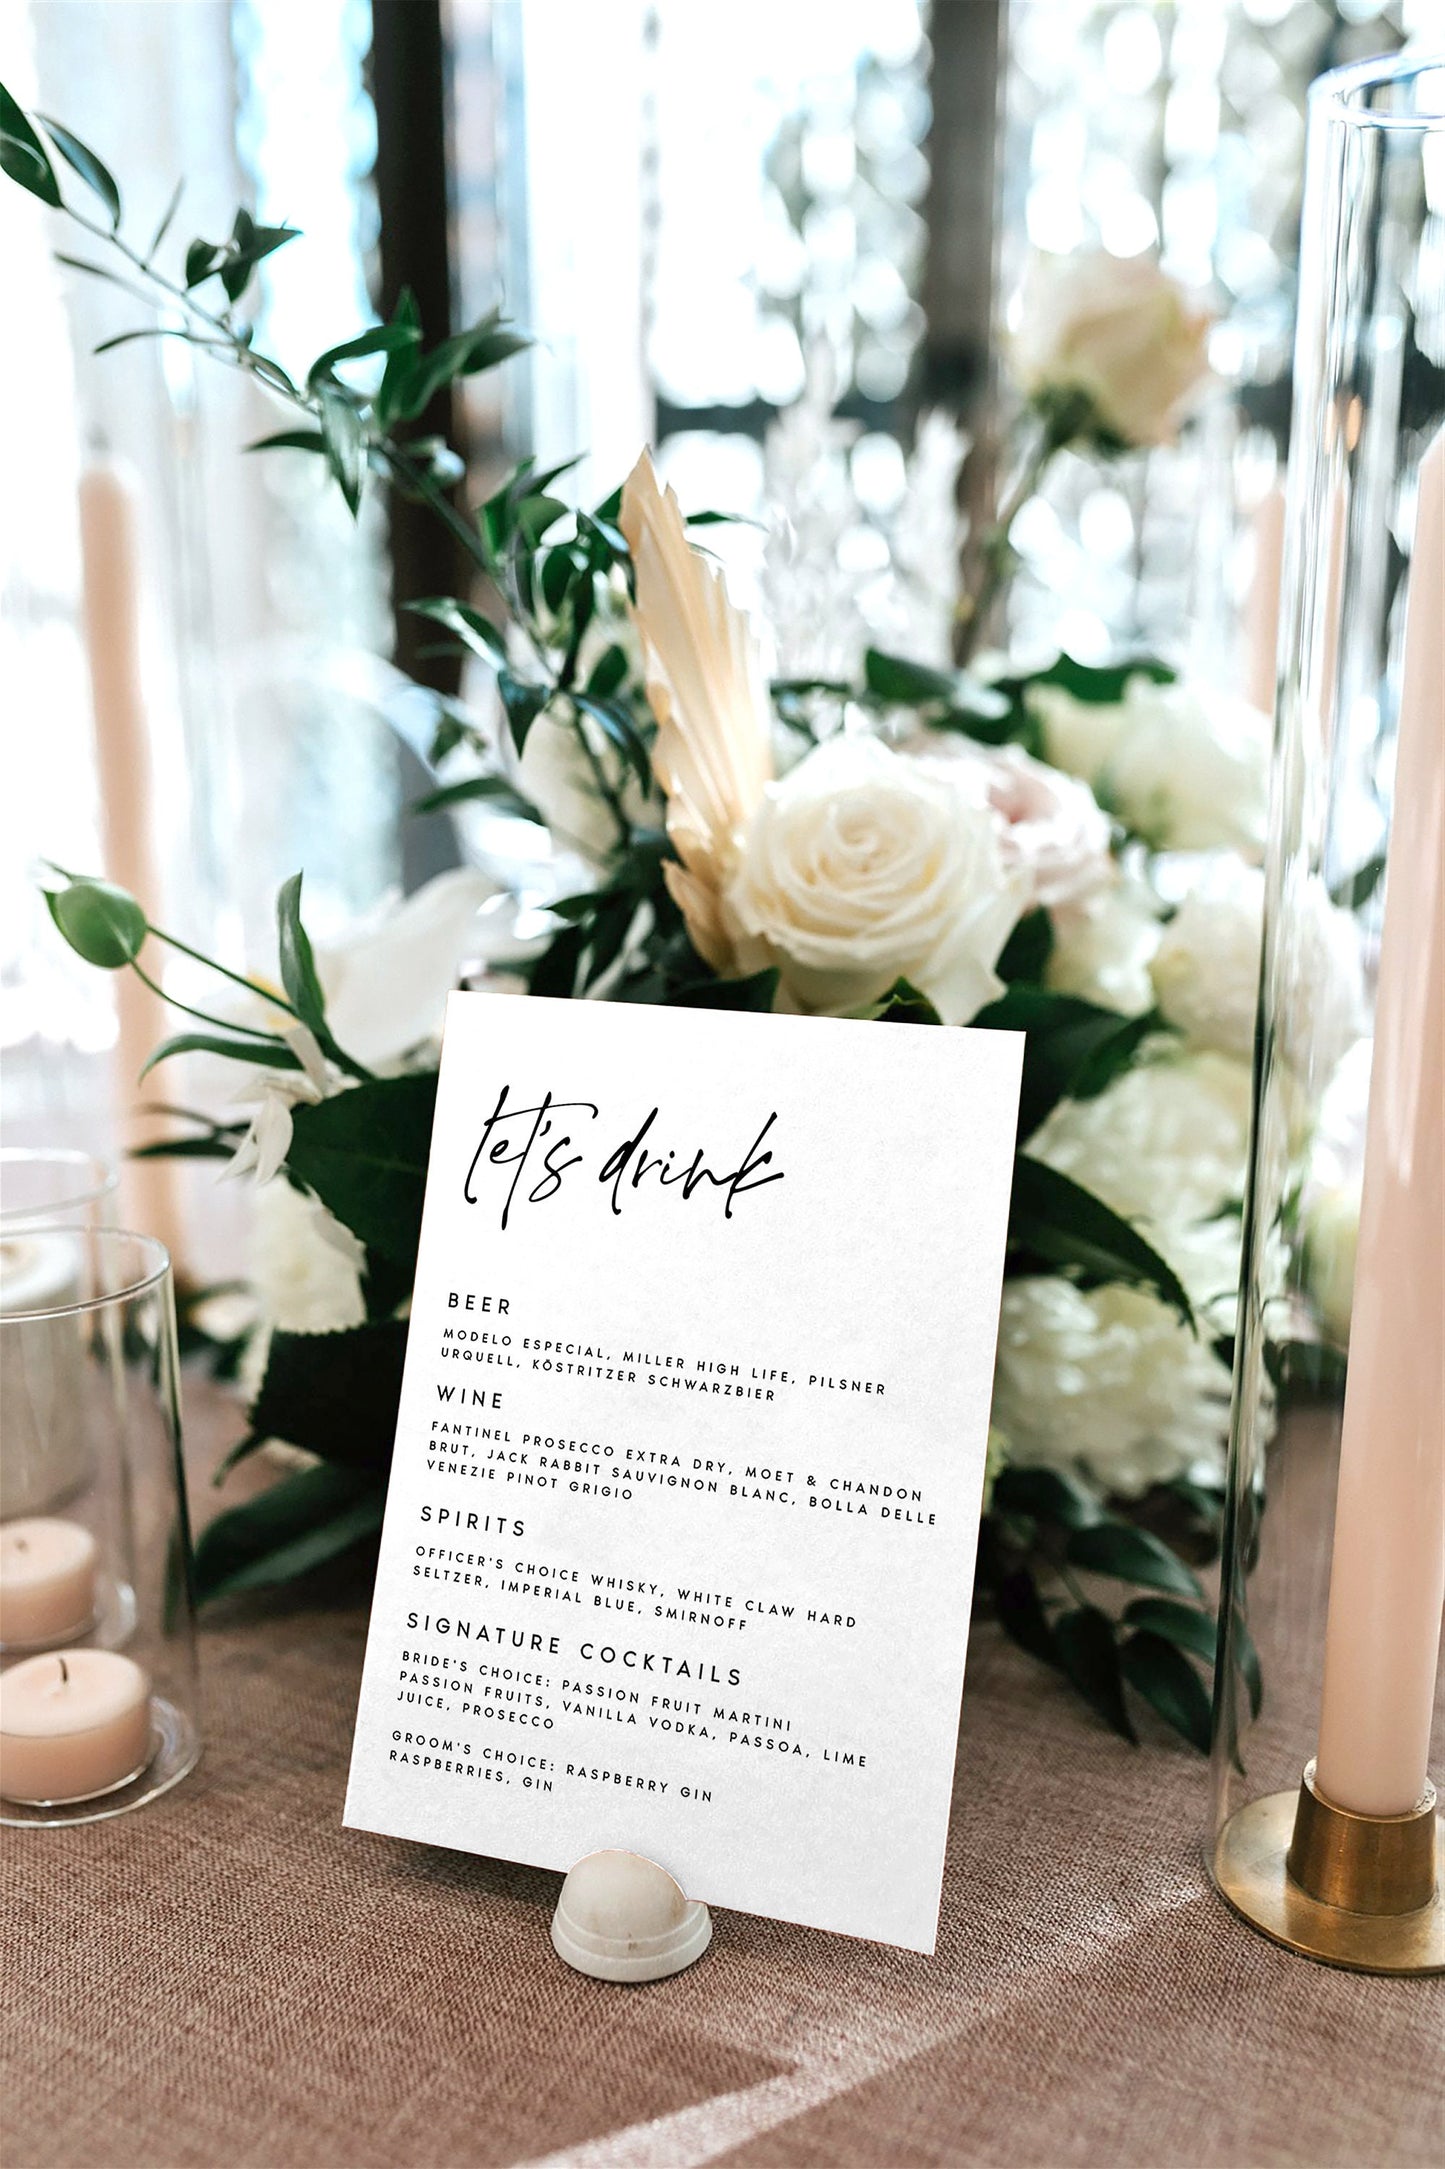 let's drink
BEER
MODELO ESPECIAL, MILLER HIGH LIFE, PILSNER
URQUELL, KÖSTRITZER SCHWARZBIER
WINE
FANTINEL PROSECCO EXTRA DRY, MOET & CHANDON
BRUT, JACK RABBIT SAUVIGNON BLANC, BOLLA DELLE
VENEZIE PINOT GRIGIO
SPIRITS
OFFICER'S CHOICE WHISKY, WHITE CLAW HARD
SELTZER, IMPERIAL BLUE, SMIRNOFF
SIGNATURE COCKTAILS
BRIDE'S CHOICE: PASSION FRUIT MARTINI
PASSION FRUITS, VANILLA VODKA, PASSOA, LIME
JUICE, PROSECCO
GROOM'S CHOICE: RASPBERRY GIN
RASPBERRIES, GIN